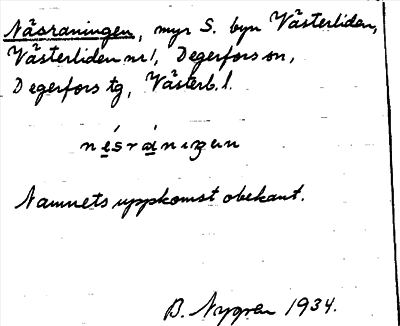 Näsraningen, myr S. byn Västerliden,
Västerliden nr 1, Degerfors sn,
Degerfors tg, Västerb. l.
Namnets uppkomst obekant.
B. Nygren 1934.